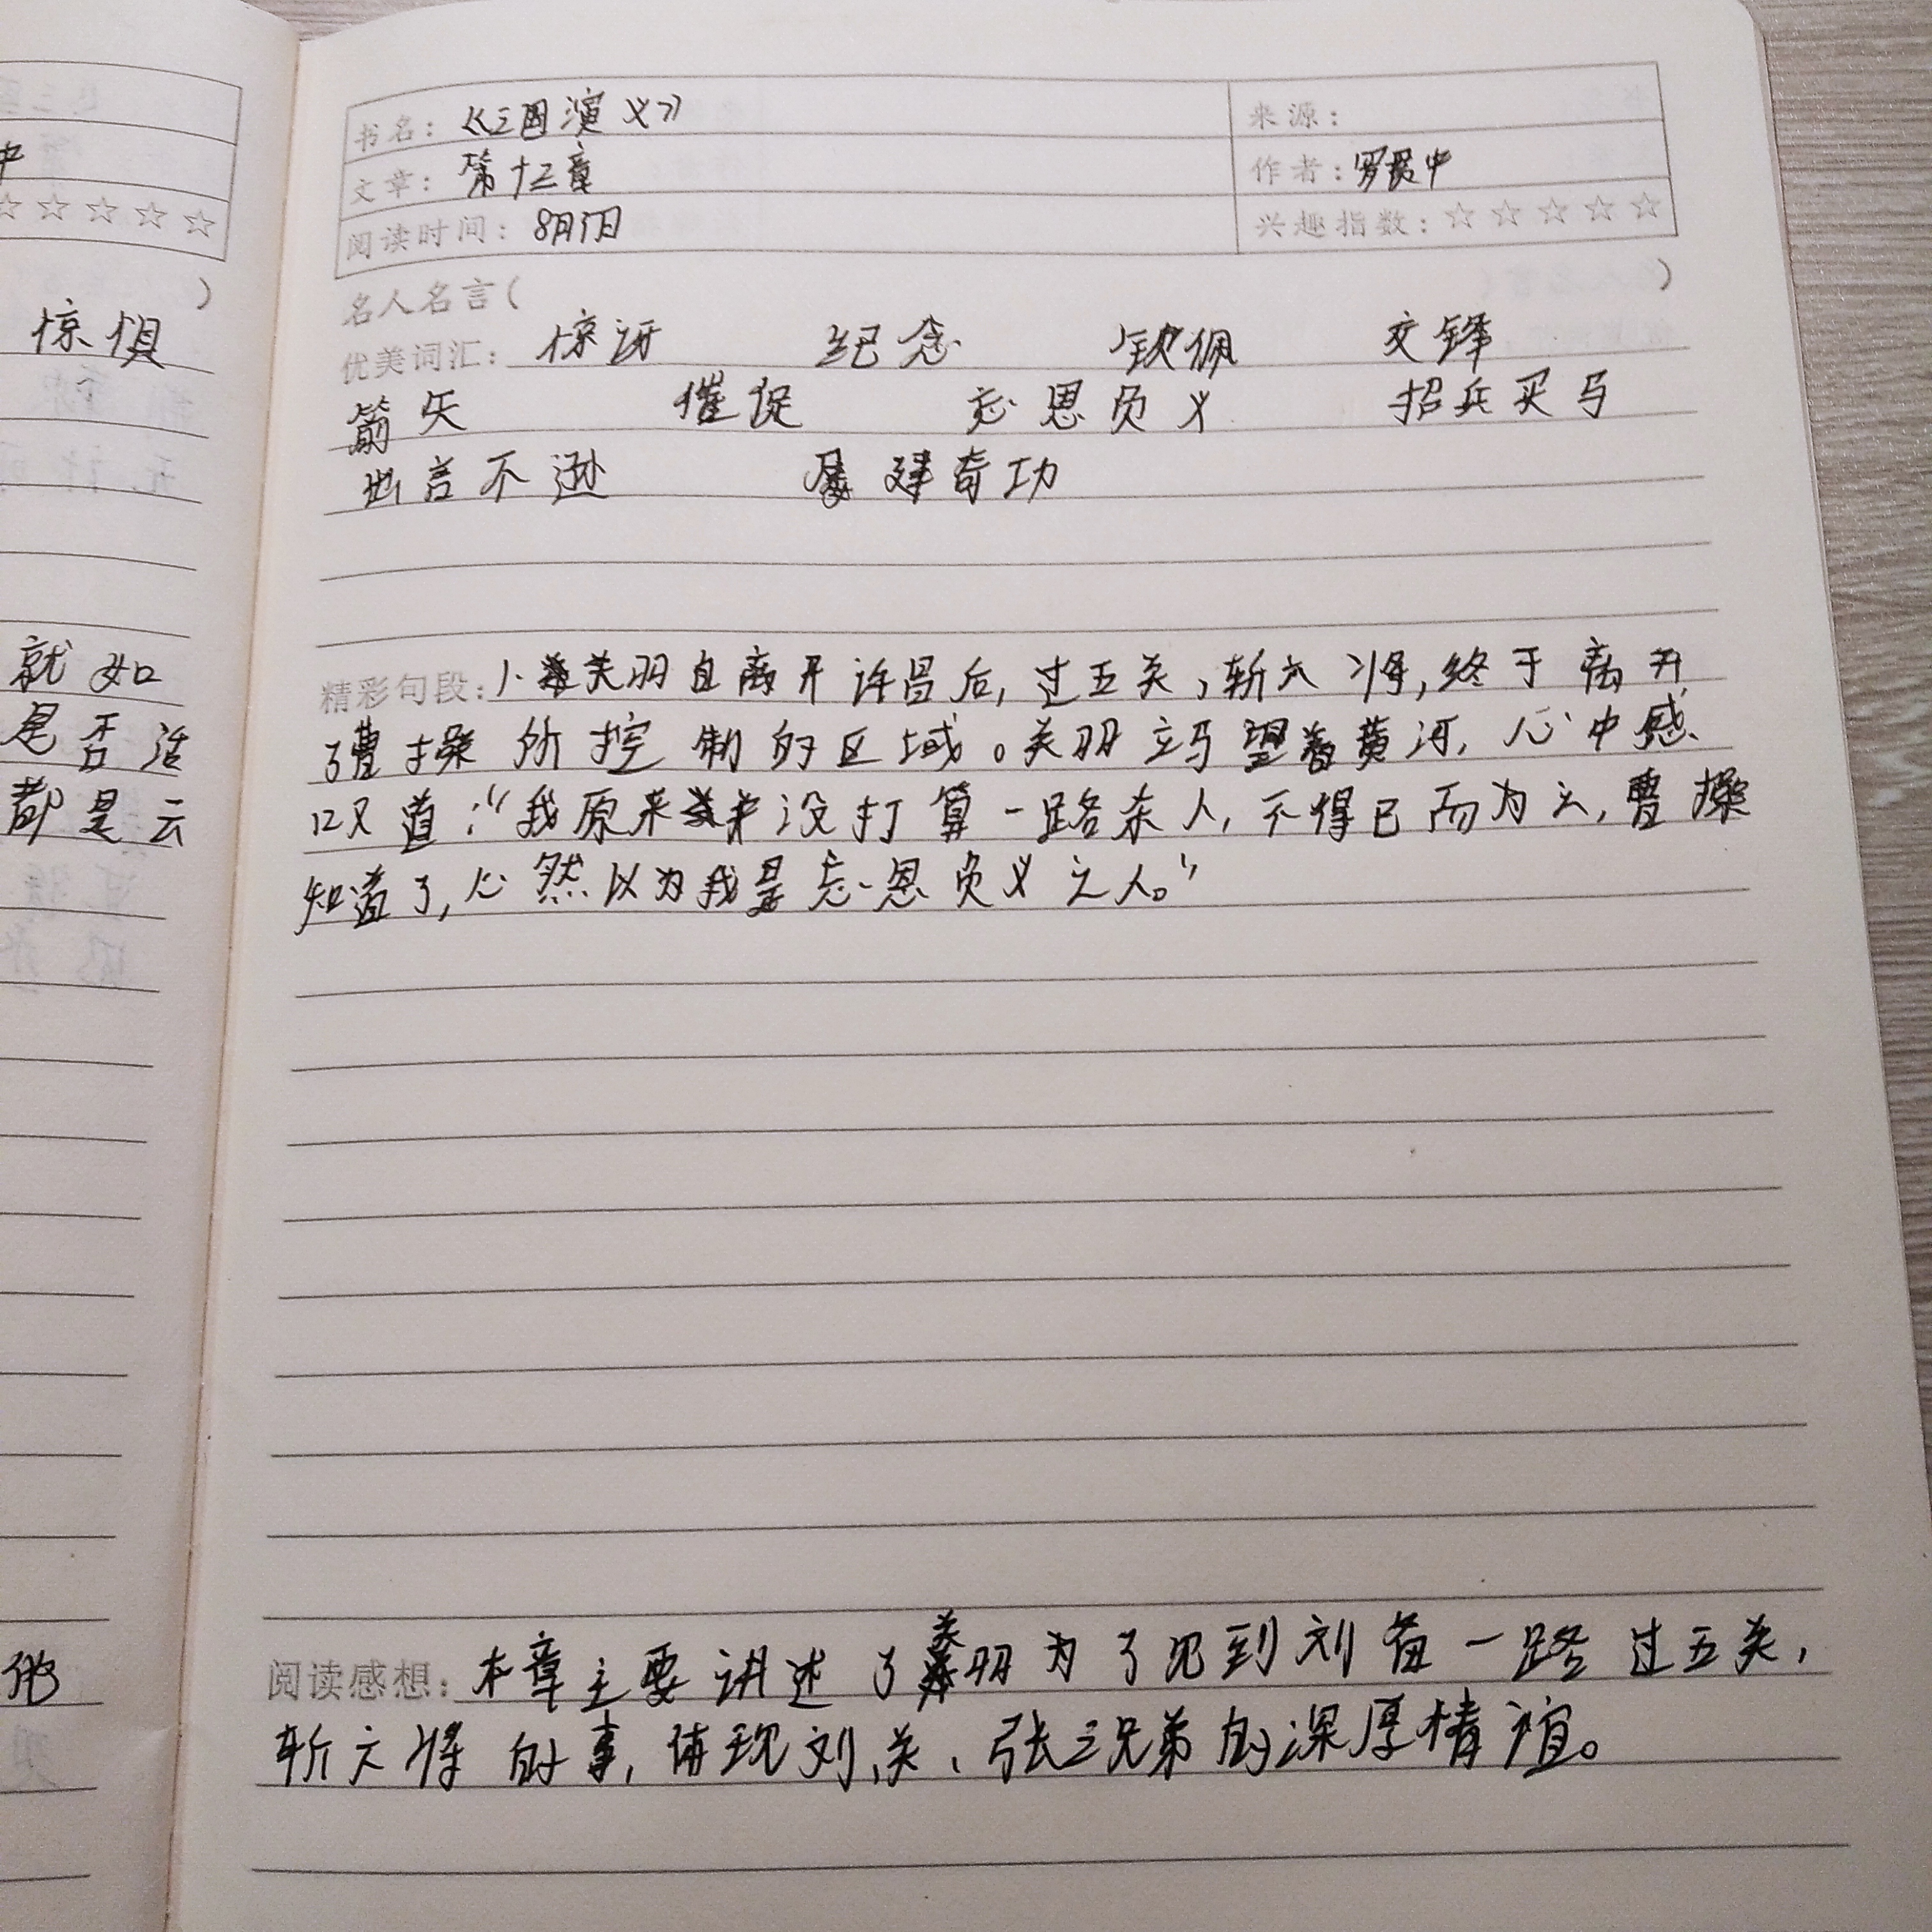 中
☆☆☆☆☆
)
惊惧
就如
是否活
都是云
书名：《三国演义》
来源：
文章：第十三章
作者：罗贯中
阅读时间：8月
兴趣指数：☆☆☆☆☆
名人名言( )
优美词汇：惊讶 纪念 钦佩 交锋
箭矢 催促 忘恩负义 招兵买马
出言不逊 屡建奇功
精彩句段：1、关羽自离开许昌后，过五关，斩六将，终于离开
了曹操所控制的区域。关羽立马望着黄河，心中感
叹道：“我原来没打算一路杀人，不得已而为之，曹操
知道了，心然以为我是忘恩负义之人。”
阅读感想：本章主要讲述了关羽为了见到刘备一路过五关，
斩六将的事，体现刘、关、张三兄弟的深厚情谊。